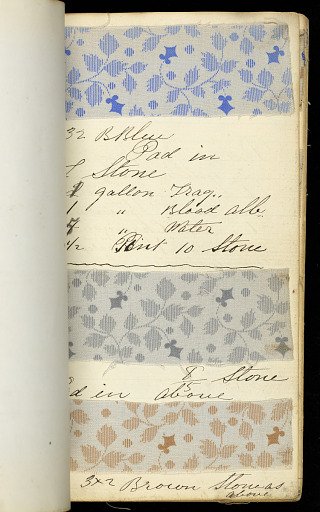 32 B Blue
Pad in
Stone
1 gallon Trag..
1 " Blood alb.
7 " Water
1/2 Pint 10 Stone
8/5 Stone
in above
3x2 Brown Stone as
above